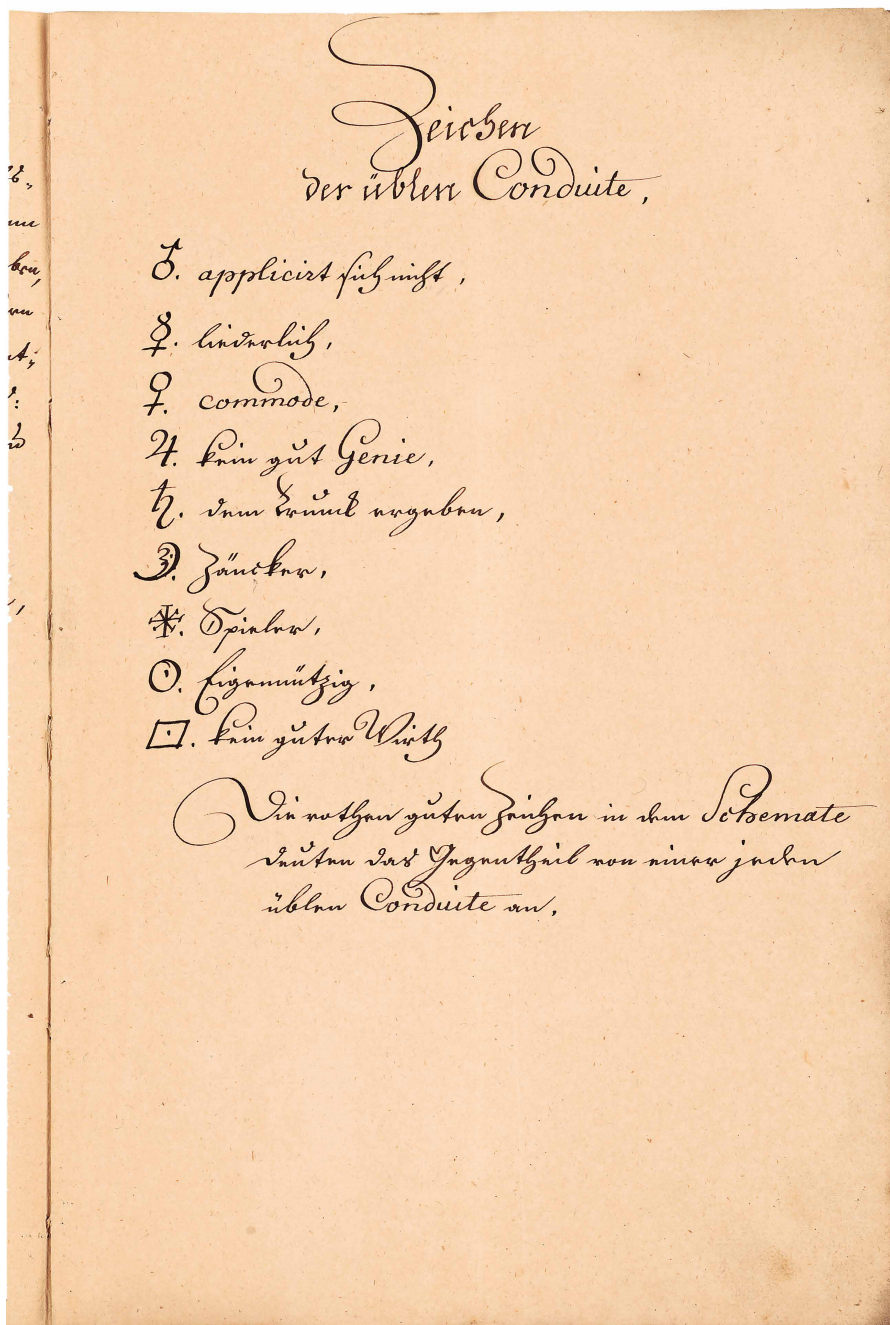 Zeichen
der üblen Conduite,
♂. applicirt sich nicht,
☿. liederlich,
♀. commode,
♃. kein gut Genie,
♄. dem Trunck ergeben,
☽. Zäncker,
⚹. Spieler,
☉. Eigennützig,
⊡. kein guter Wirth
Die rothen guten Zeichen in dem Schemate
deuten das Gegentheil von einer jeden
üblen Conduite an.